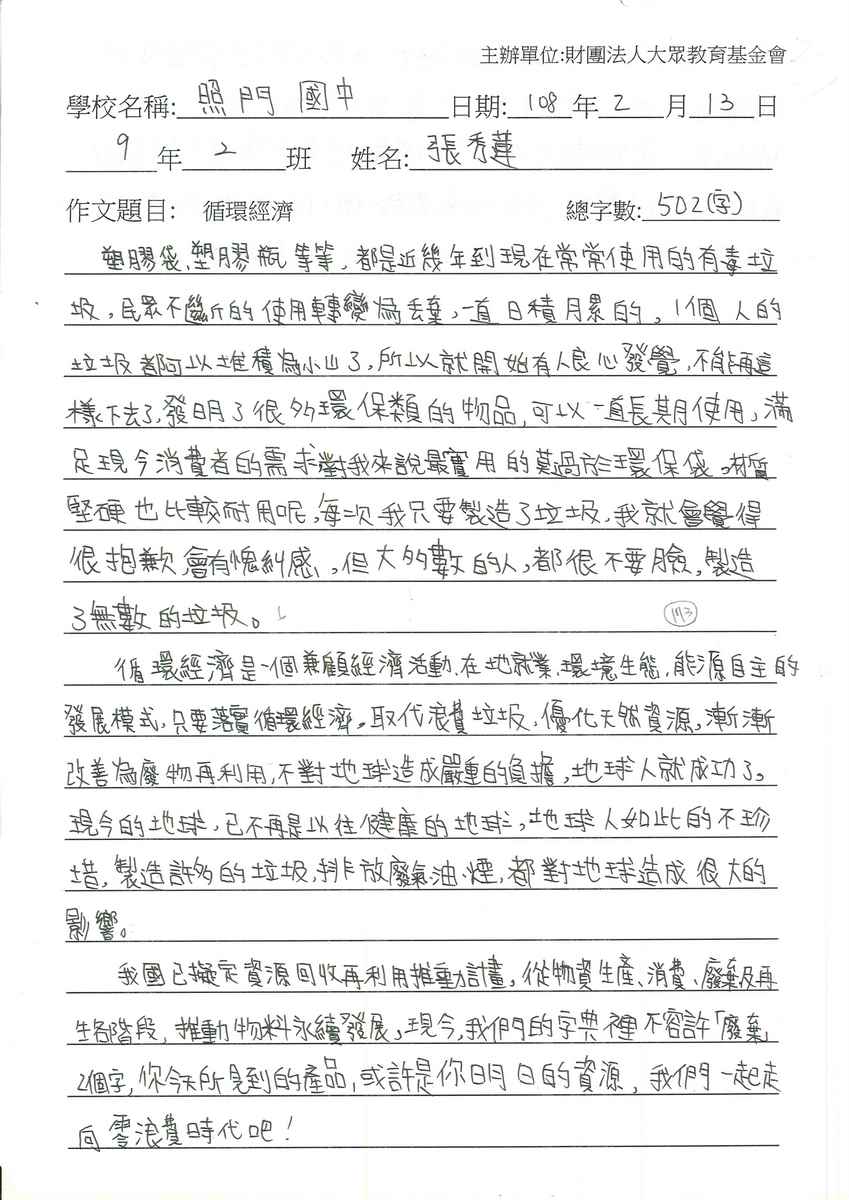 主辦單位:財團法人大眾教育基金會
學校名稱: 照門 國中 日期: 108 年 2 月 13 日
9 年 2 班 姓名: 張秀蓮
作文題目: 循環經濟 總字數: 502(字)
塑膠袋、塑膠瓶等等，都是近幾年到現在常常使用的有毒垃
圾，民眾不斷的使用轉變為丟棄，一直日積月累的，1個人的
垃圾都可以堆積為小山了，所以就開始有人良心發覺，不能再這
樣下去了，發明了很多環保類的物品，可以一直長期使用，滿
足現今消費者的需求對我來說最實用的莫過於環保袋。材質
堅硬也比較耐用呢，每次我只要製造了垃圾，我就會覺得
很抱歉，會有愧糾感、，但大多數的人，都很不要臉，製造
了無數的垃圾。
193
循環經濟是一個兼顧經濟活動、在地就業、環境生態，能源自主的
發展模式，只要落實循環經濟。取代浪費垃圾，優化天然資源，漸漸
改善為廢物再利用，不對地球造成嚴重的負擔，地球人就成功了。
現今的地球，已不再是以往健康的地球，地球人如此的不珍
惜，製造許多的垃圾，排放廢氣油、煙，都對地球造成很大的
影響。
我國已擬定資源回收再利用推動計畫，從物資生產、消費、廢棄及再
生各階段，推動物料永續發展，現今，我們的字典裡不容許「廢棄」
2個字，你今天所見到的產品，或許是你明日的資源，我們一起走
向零浪費時代吧！